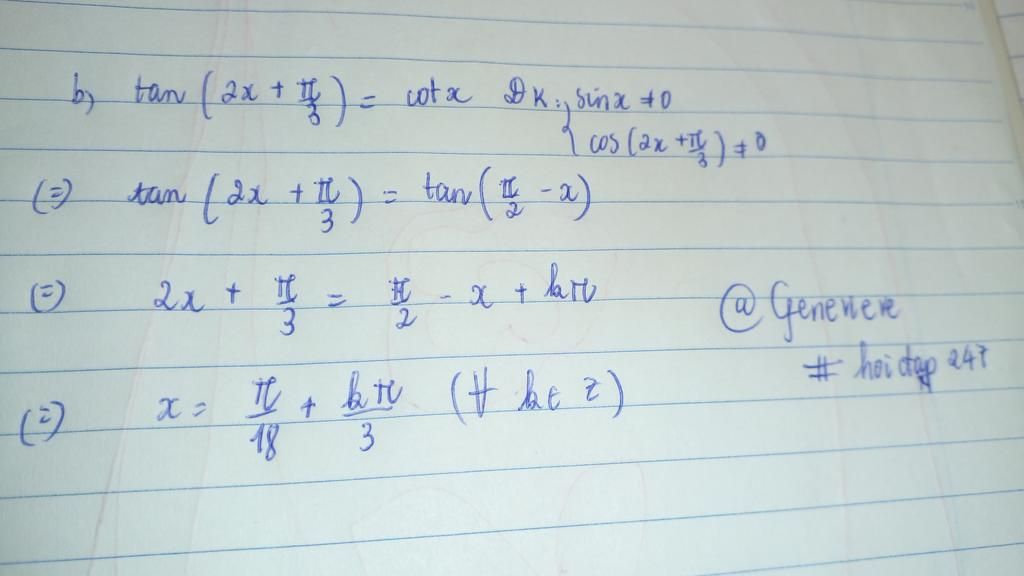 b, tan (2x + π/3) = cotx ĐK: { sinx ≠ 0
cos (2x + π/3) ≠ 0
(=) tan (2x + π/3) = tan (π/2 - x)
(=) 2x + π/3 = π/2 - x + kπ
@Genevieve
# hoidap247
(=) x = π/18 + kπ/3 (∀ k ∈ Z)